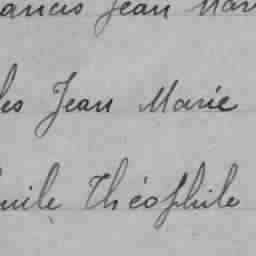 Jean Mar
les Jean Marie
mile Théophile